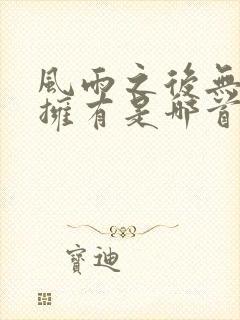 風雨之後無
擁有是那首
寶迪